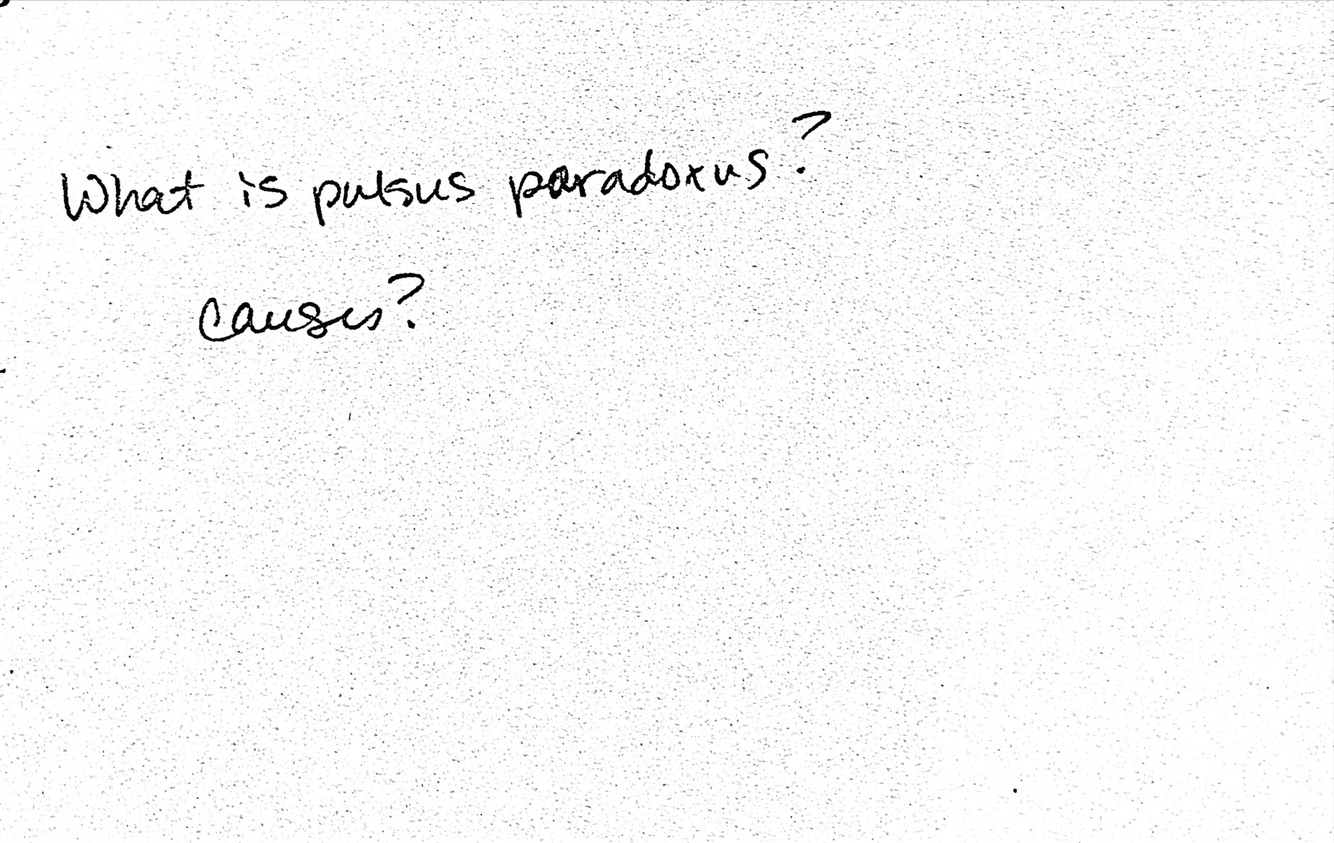 What is pulsus paradoxus?
Causes?